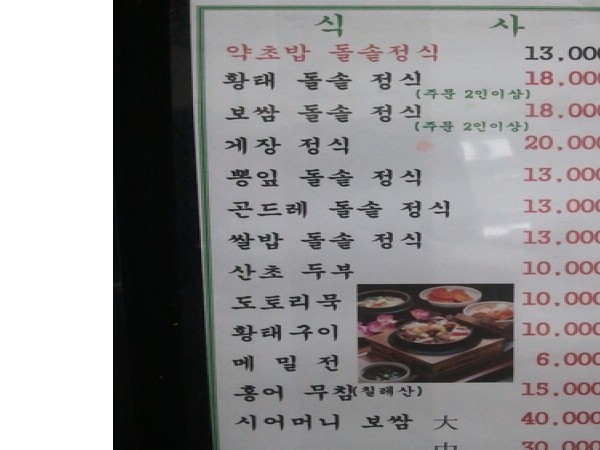 식 사
약초밥 돌솥정식 13.000
황태 돌솥 정식 18.000
(주문 2인이상)
보쌈 돌솥 정식 18.000
(주문 2인이상)
게장 정식 20.000
뽕잎 돌솥 정식 13.000
곤드레 돌솥 정식 13.000
쌀밥 돌솥 정식 13.000
산초 두부 10.000
도토리묵 10.000
황태구이 10.000
메 밀 전 6.000
홍어 무침(칠레산) 15.000
시어머니 보쌈 大 40.000
中 30.000